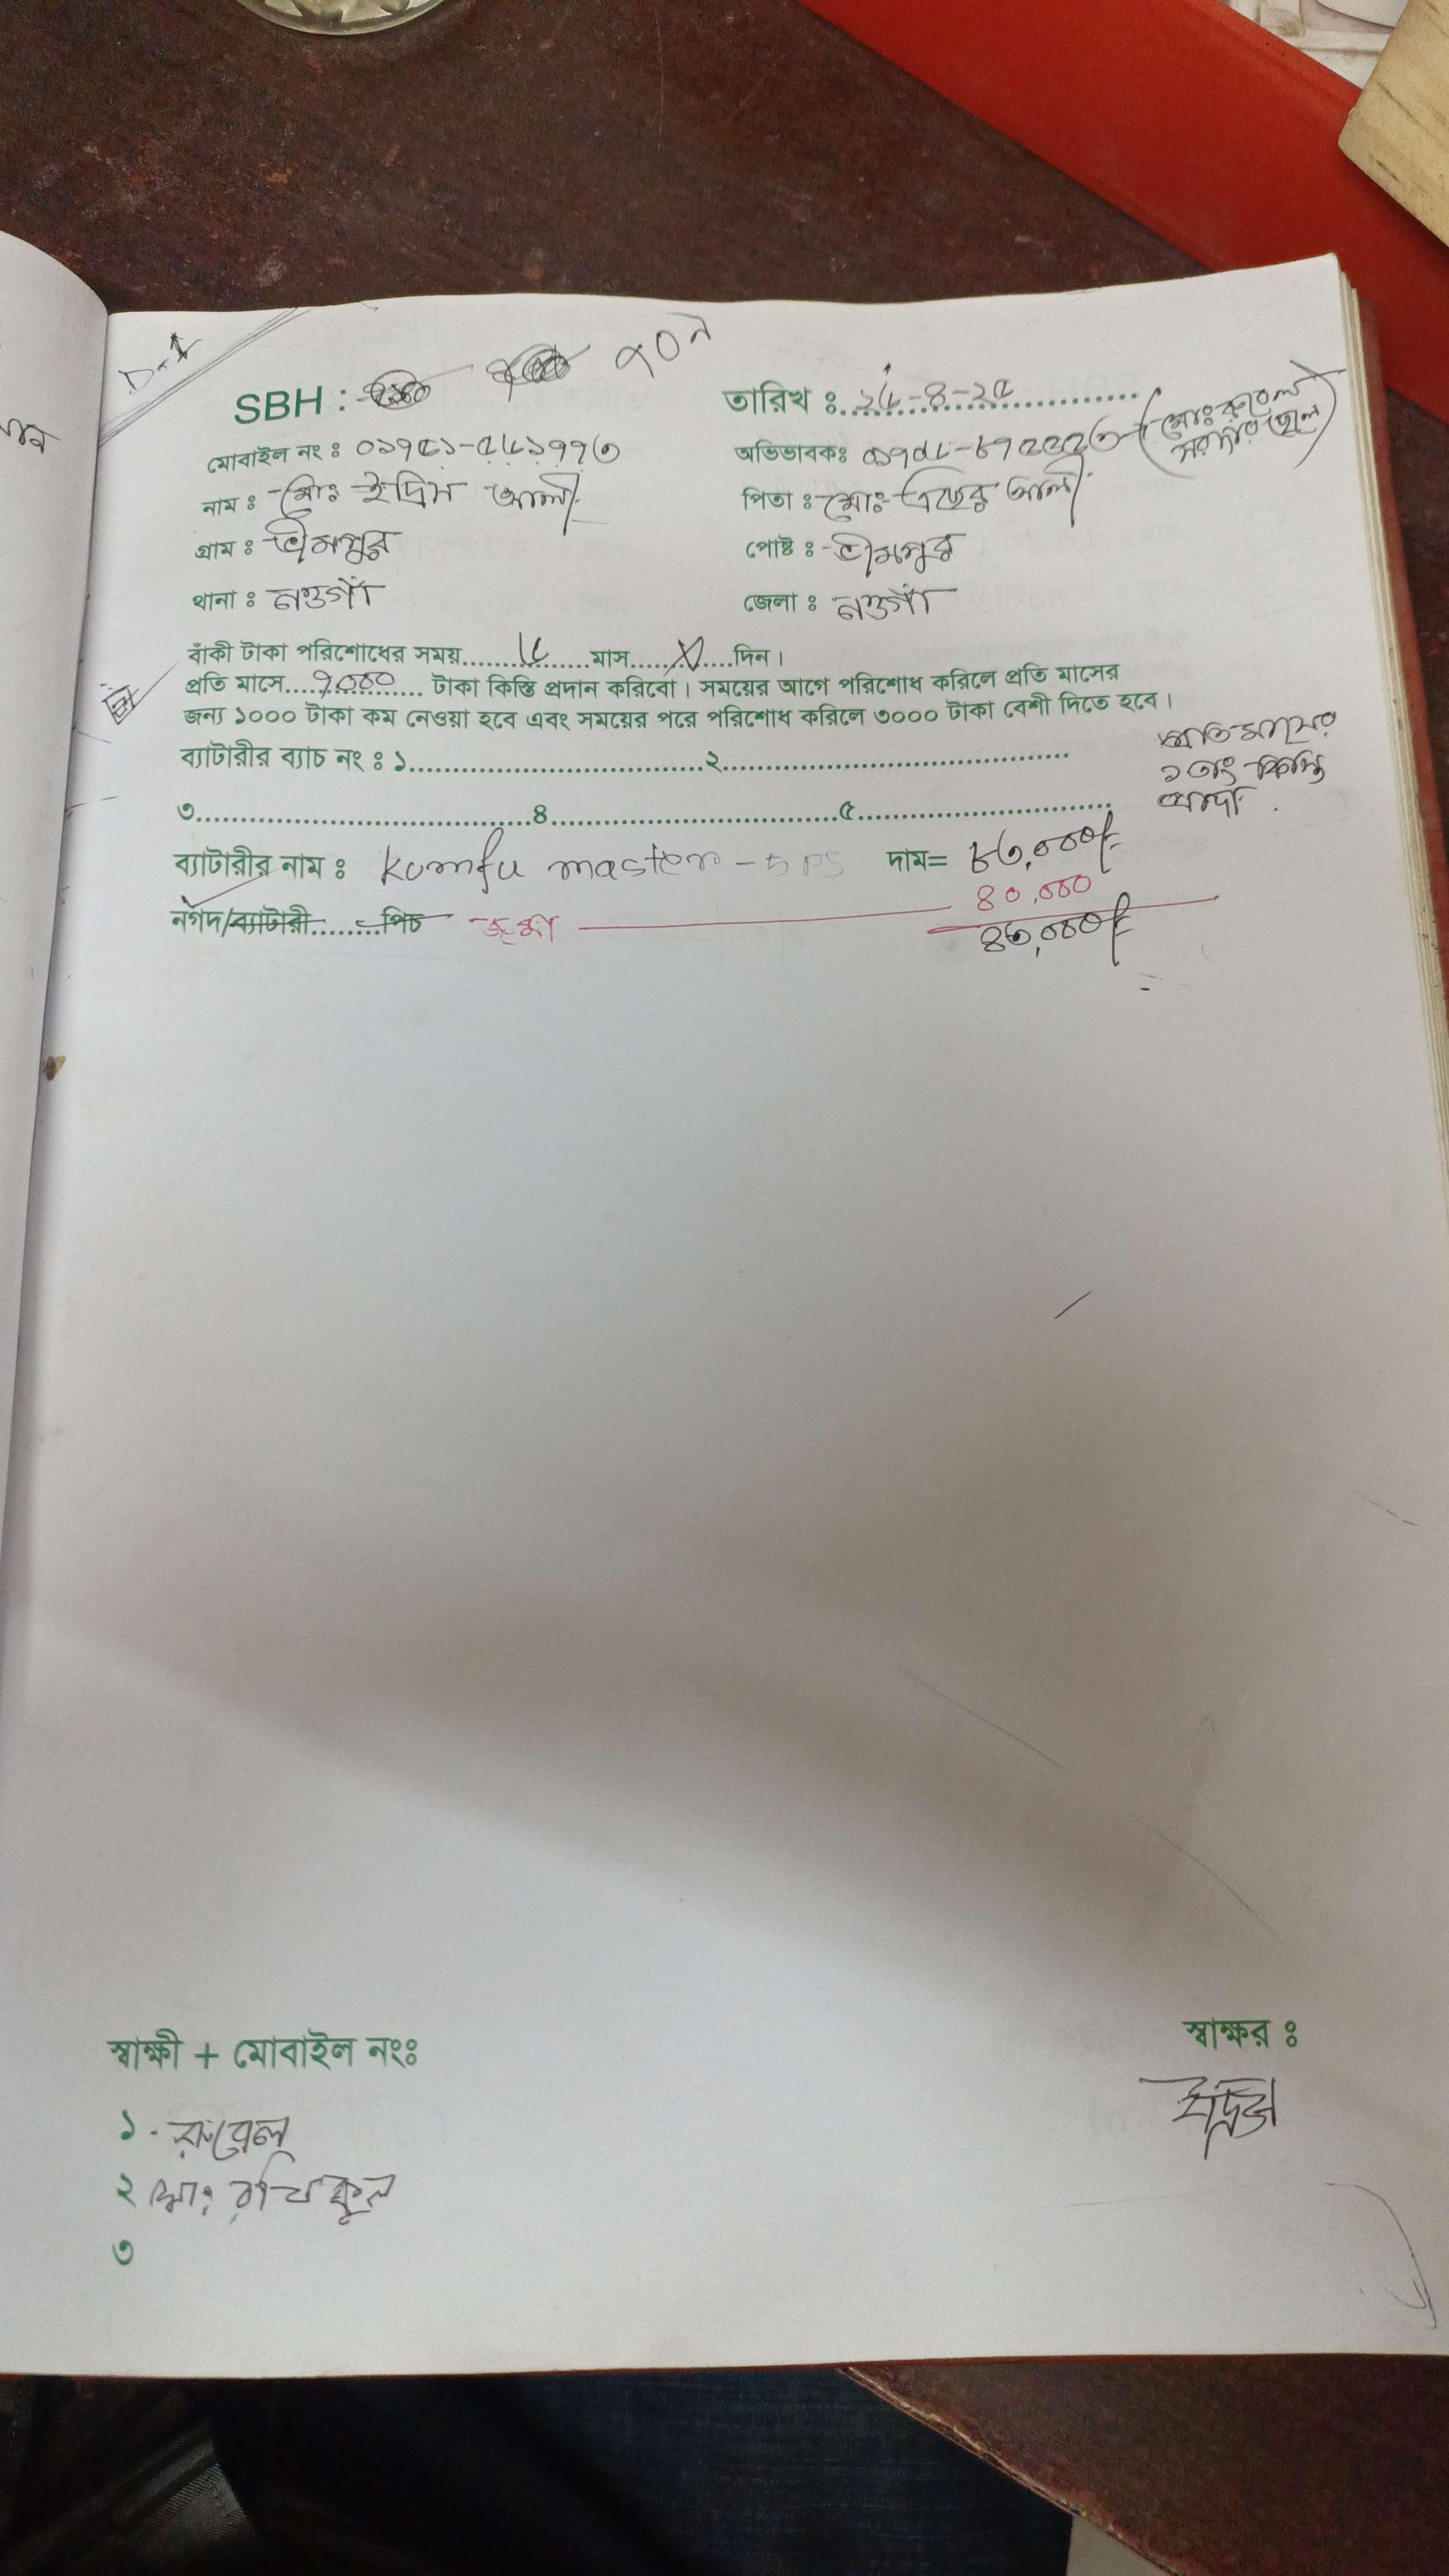 D-1
SBH : ৭০৯
তারিখ ঃ ২৬-৪-২৫
মোবাইল নং ঃ ০১৭৫১-৫৬১৭৭৩
অভিভাবকঃ (মোঃ রুবেল
সরদার ছেলে)
নাম ঃ মোঃ ইদ্রিস আলী
পিতা ঃ মোঃ আলী
গ্রাম ঃ ভীমপুর
পোষ্ট ঃ ভীমপুর
থানা ঃ নওগাঁ
জেলা ঃ নওগাঁ
বাঁকী টাকা পরিশোধের সময়.............৬........মাস......X.....দিন।
প্রতি মাসে....৭,০০০........ টাকা কিস্তি প্রদান করিবো। সময়ের আগে পরিশোধ করিলে প্রতি মাসের
জন্য ১০০০ টাকা কম নেওয়া হবে এবং সময়ের পরে পরিশোধ করিলে ৩০০০ টাকা বেশী দিতে হবে।
প্রতি মাসের
১ তাং কিস্তি
ব্যাটারীর ব্যাচ নং ঃ ১..................................২.........................................
৩.......................................৪...................................৫..............................
ব্যাটারীর নাম ঃ Kumfu master - 5 PS দাম= ৮৩,০০০/=
নগদ/ব্যাটারী........পিচ জমা ৪০,০০০
৪৩,০০০/=
স্বাক্ষী + মোবাইল নংঃ
স্বাক্ষর ঃ
১. রুবেল
ইদ্রিস
২ মোঃ রফিকুল
৩